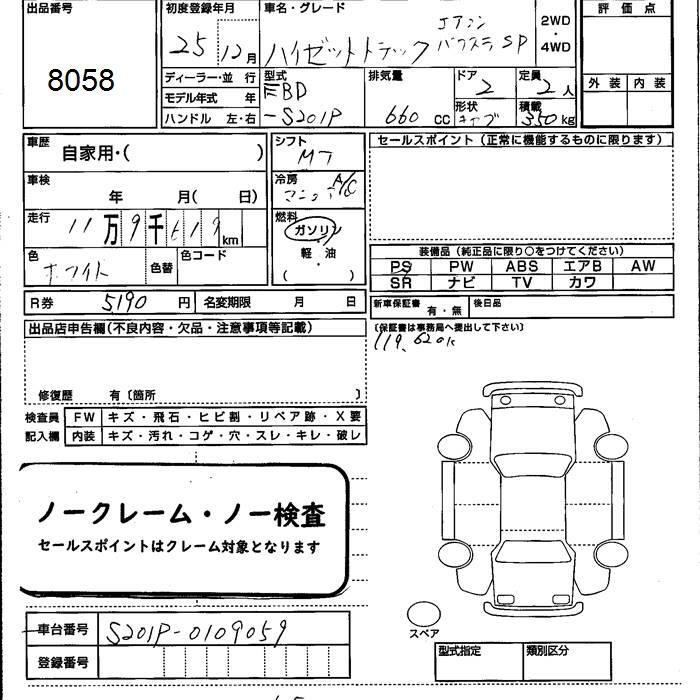 出品番号
8058
初度登録年月
25 12月
車名・グレード
エアコン
ハイゼットトラック パワステ SP
2WD
・
4WD
評価点
外装 内装
ディーラー・並行
モデル年式 年
ハンドル 左・右
型式
EBD
-S201P
排気量
660 cc
ドア
2
形状
キャブ
定員
2人
積載
350kg
車歴
自家用・( )
車検
年 月( 日)
走行
11万9千619km
色
ホワイト
色替
色コード
シフト
MT
冷房
A/C
マニュアル
燃料
ガソリン
軽・油
( )
セールスポイント(正常に機能するものに限ります)
装備品(純正品に限り○をつけてください)
PS PW ABS エアB AW
SR ナビ TV カワ
R券 5190円 名変期限 月 日
新車保証書 有・無 後日品
(保証書は事務局へ提出して下さい)
119,620k
出品店申告欄(不良内容・欠品・注意事項等記載)
修復歴 有〔箇所 〕
検査員 FW キズ・飛石・ヒビ割・リペア跡・X要
記入欄 内装 キズ・汚れ・コゲ・穴・スレ・キレ・破レ
ノークレーム・ノー検査
セールスポイントはクレーム対象となります
車台番号 S201P-0109059
登録番号
スペア
型式指定 類別区分